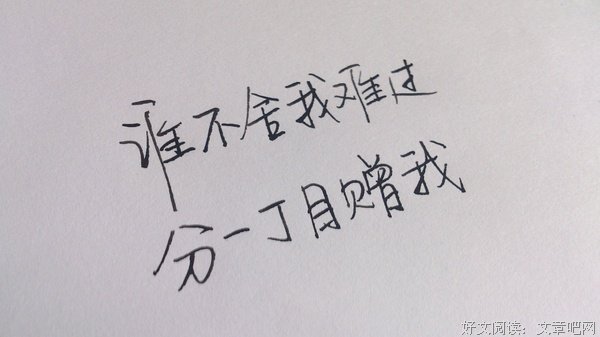 谁不舍我难过
分一丁目赠我
好文阅读：文章吧网